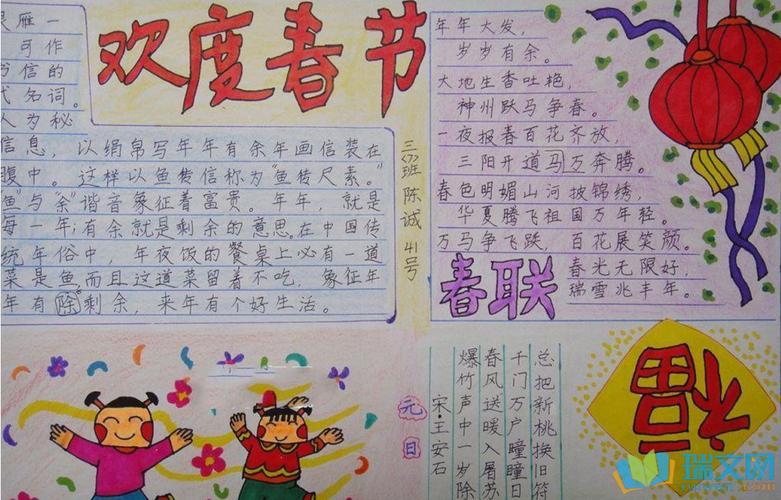 欢度春节
雁一
可作
书信的
代名词。
人为秘
信息，以绢帛写年年有余年画信装在
腹中。这样以鱼传信称为"鱼传尺素"。
鱼"与"余"谐音象征着富贵。年年，就是
每一年;有余就是剩余的意思。在中国传
统年俗中，年夜饭的餐桌上必有一道
菜是鱼,而且这道菜留着不吃，象征年
年有除剩余，来年有个好生活。
三〈7〉班 陈诚 41号
年年大发，
岁岁有余。
大地生香吐艳，
神州跃马争春。
一夜报春百花齐放，
三阳开道马万奔腾。
春色明媚山河披锦绣，
华夏腾飞祖国万年轻。
万马争飞跌，百花展笑颜。
春光无限好，
瑞雪兆丰年。
春联
元日
宋·王安石
爆竹声中一岁除
春风送暖入屠苏
千门万户瞳瞳日
总把新桃换旧符
福
瑞文网